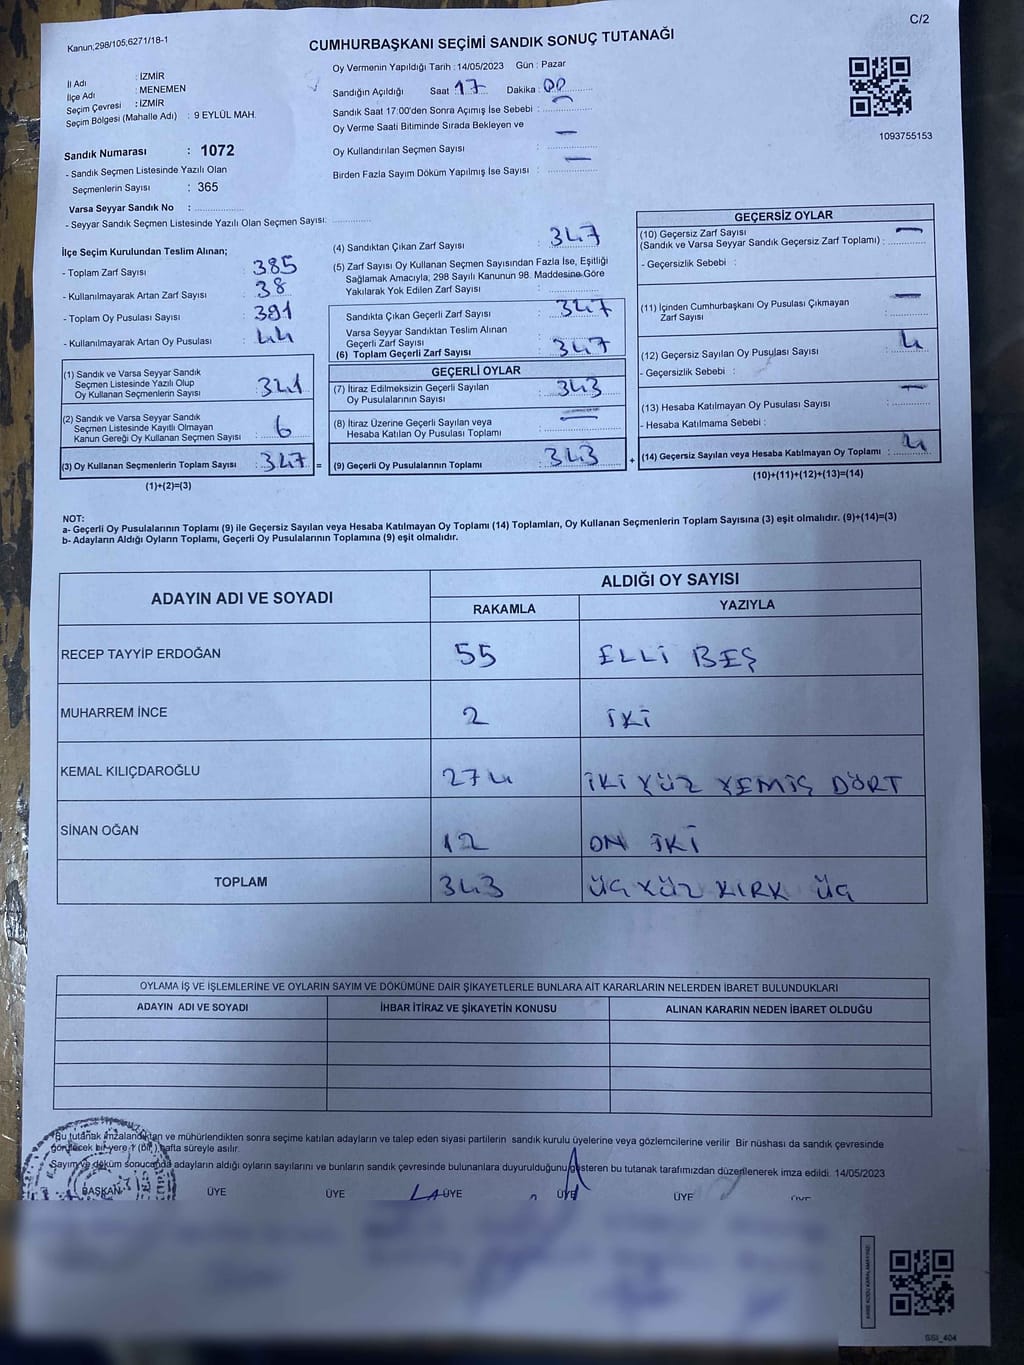 C/2
Kanun;298/105;6271/18-1
CUMHURBAŞKANI SEÇİMİ SANDIK SONUÇ TUTANAĞI
İl Adı : İZMİR
İlçe Adı : MENEMEN
Seçim Çevresi : İZMİR
Seçim Bölgesi (Mahalle Adı) : 9 EYLÜL MAH.
Sandık Numarası : 1072
- Sandık Seçmen Listesinde Yazılı Olan
Seçmenlerin Sayısı : 365
Varsa Seyyar Sandık No :
- Seyyar Sandık Seçmen Listesinde Yazılı Olan Seçmen Sayısı:
Oy Vermenin Yapıldığı Tarih :14/05/2023 Gün : Pazar
Sandığın Açıldığı Saat 17 Dakika : 00
Sandık Saat 17:00'den Sonra Açımış İse Sebebi : —
Oy Verme Saati Bitiminde Sırada Bekleyen ve
Oy Kullandırılan Seçmen Sayısı : —
Birden Fazla Sayım Döküm Yapılmış İse Sayısı : —
1093755153
İlçe Seçim Kurulundan Teslim Alınan;
- Toplam Zarf Sayısı : 385
- Kullanılmayarak Artan Zarf Sayısı : 38
- Toplam Oy Pusulası Sayısı : 391
- Kullanılmayarak Artan Oy Pusulası : 44
(1) Sandık ve Varsa Seyyar Sandık
Seçmen Listesinde Yazılı Olup
Oy Kullanan Seçmenlerin Sayısı : 341
(2) Sandık ve Varsa Seyyar Sandık
Seçmen Listesinde Kayıtlı Olmayan
Kanun Gereği Oy Kullanan Seçmen Sayısı : 6
(3) Oy Kullanan Seçmenlerin Toplam Sayısı : 347 =
(1)+(2)=(3)
(4) Sandıktan Çıkan Zarf Sayısı : 347
(5) Zarf Sayısı Oy Kullanan Seçmen Sayısından Fazla İse, Eşitliği
Sağlamak Amacıyla, 298 Sayılı Kanunun 98. Maddesine Göre
Yakılarak Yok Edilen Zarf Sayısı :
Sandıkta Çıkan Geçerli Zarf Sayısı : 347
Varsa Seyyar Sandıktan Teslim Alınan
Geçerli Zarf Sayısı :
(6) Toplam Geçerli Zarf Sayısı : 347
GEÇERLİ OYLAR
(7) İtiraz Edilmeksizin Geçerli Sayılan
Oy Pusulalarının Sayısı : 343
(8) İtiraz Üzerine Geçerli Sayılan veya
Hesaba Katılan Oy Pusulası Toplamı : —
(9) Geçerli Oy Pusulalarının Toplamı : 343 +
GEÇERSİZ OYLAR
(10) Geçersiz Zarf Sayısı
(Sandık ve Varsa Seyyar Sandık Geçersiz Zarf Toplamı) : —
- Geçersizlik Sebebi :
(11) İçinden Cumhurbaşkanı Oy Pusulası Çıkmayan
Zarf Sayısı : —
(12) Geçersiz Sayılan Oy Pusulası Sayısı : 4
- Geçersizlik Sebebi :
(13) Hesaba Katılmayan Oy Pusulası Sayısı : —
- Hesaba Katılmama Sebebi :
(14) Geçersiz Sayılan veya Hesaba Katılmayan Oy Toplamı : 4
(10)+(11)+(12)+(13)=(14)
NOT:
a- Geçerli Oy Pusulalarının Toplamı (9) ile Geçersiz Sayılan veya Hesaba Katılmayan Oy Toplamı (14) Toplamları, Oy Kullanan Seçmenlerin Toplam Sayısına (3) eşit olmalıdır. (9)+(14)=(3)
b- Adayların Aldığı Oyların Toplamı, Geçerli Oy Pusulalarının Toplamına (9) eşit olmalıdır.
ADAYIN ADI VE SOYADI ALDIĞI OY SAYISI
RAKAMLA YAZIYLA
RECEP TAYYİP ERDOĞAN 55 ELLİ BEŞ
MUHARREM İNCE 2 İKİ
KEMAL KILIÇDAROĞLU 274 İKİ YÜZ YEMİŞ DÖRT
SİNAN OĞAN 12 ON İKİ
TOPLAM 343 ÜÇ YÜZ KIRK ÜÇ
OYLAMA İŞ VE İŞLEMLERİNE VE OYLARIN SAYIM VE DÖKÜMÜNE DAİR ŞİKAYETLERLE BUNLARA AİT KARARLARIN NELERDEN İBARET BULUNDUKLARI
ADAYIN ADI VE SOYADI İHBAR İTİRAZ VE ŞİKAYETİN KONUSU ALINAN KARARIN NEDEN İBARET OLDUĞU
Bu tutanak imzalandıktan ve mühürlendikten sonra seçime katılan adayların ve talep eden siyasi partilerin sandık kurulu üyelerine veya gözlemcilerine verilir Bir nüshası da sandık çevresinde
görülecek bir yere 1 (bir) hafta süreyle asılır.
Sayım ve döküm sonucunda adayların aldığı oyların sayılarını ve bunların sandık çevresinde bulunanlara duyurulduğunu gösteren bu tutanak tarafımızdan düzenlenerek imza edildi. 14/05/2023
BAŞKAN ÜYE ÜYE ÜYE ÜYE ÜYE ÜYE
SSI_404